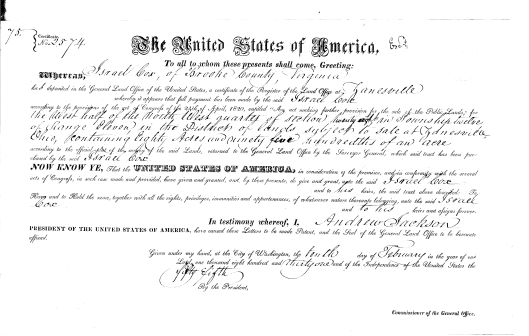 75.
Certificate
No. 2574.
The United States of America,
To all to whom these presents shall come, Greeting:
WHEREAS, Israel Cox, of Brooke County, Virginia
has deposited in the General Land Office of the United States, a certificate of the Register of the Land Office at Zanesville
whereby it appears that full payment has been made by the said Israel Cox
according to the provisions of the act of Congress of the 24th of April, 1820, entitled "An act making further provision for the sale of the Public Lands," for
the West half of the North West quarter of section in Township
of Range Eleven in the District of Lands subject to sale at Zanesville
Ohio, containing Eighty Acres and ninety five hundredths of an acre
according to the official plat of the survey of the said Lands, returned to the General Land Office by the Surveyor General, which said tract has been purchased by the said Israel Cox
NOW KNOW YE, That the UNITED STATES OF AMERICA, in consideration of the premises, and in conformity with the several
acts of Congress, in such case made and provided, have given and granted, and, by these presents, do give and grant, unto the said Israel Cox
and to his heirs, the said tract above described: To
Have and to Hold the same, together with all the rights, privileges, immunities, and appurtenances, of whatsoever nature thereunto belonging, unto the said Israel
Cox and to his heirs and assigns forever.
In testimony whereof, I, Andrew Jackson
PRESIDENT OF THE UNITED STATES OF AMERICA, have caused these Letters to be made Patent, and the Seal of the General Land Office to be hereunto
affixed.
Given under my hand, at the City of Washington, the tenth day of February in the year of our
Lord one thousand eight hundred and thirty one and of the Independence of the United States the
fifty fifth
By the President,
Commissioner of the General Office.